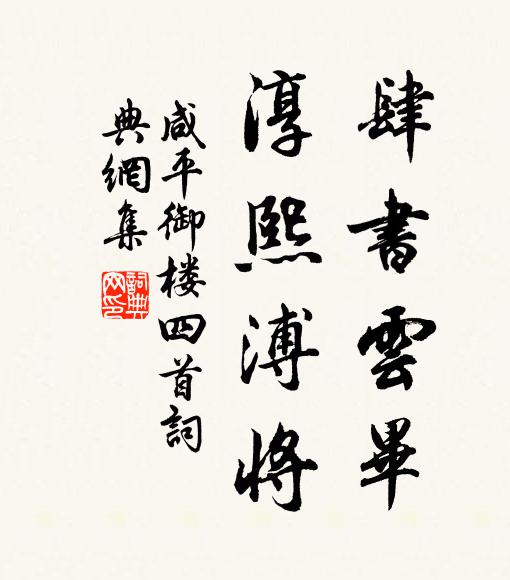 肆書雲畢
淳熙溥將
咸平御楼四首詞
典網集
詞典
网印